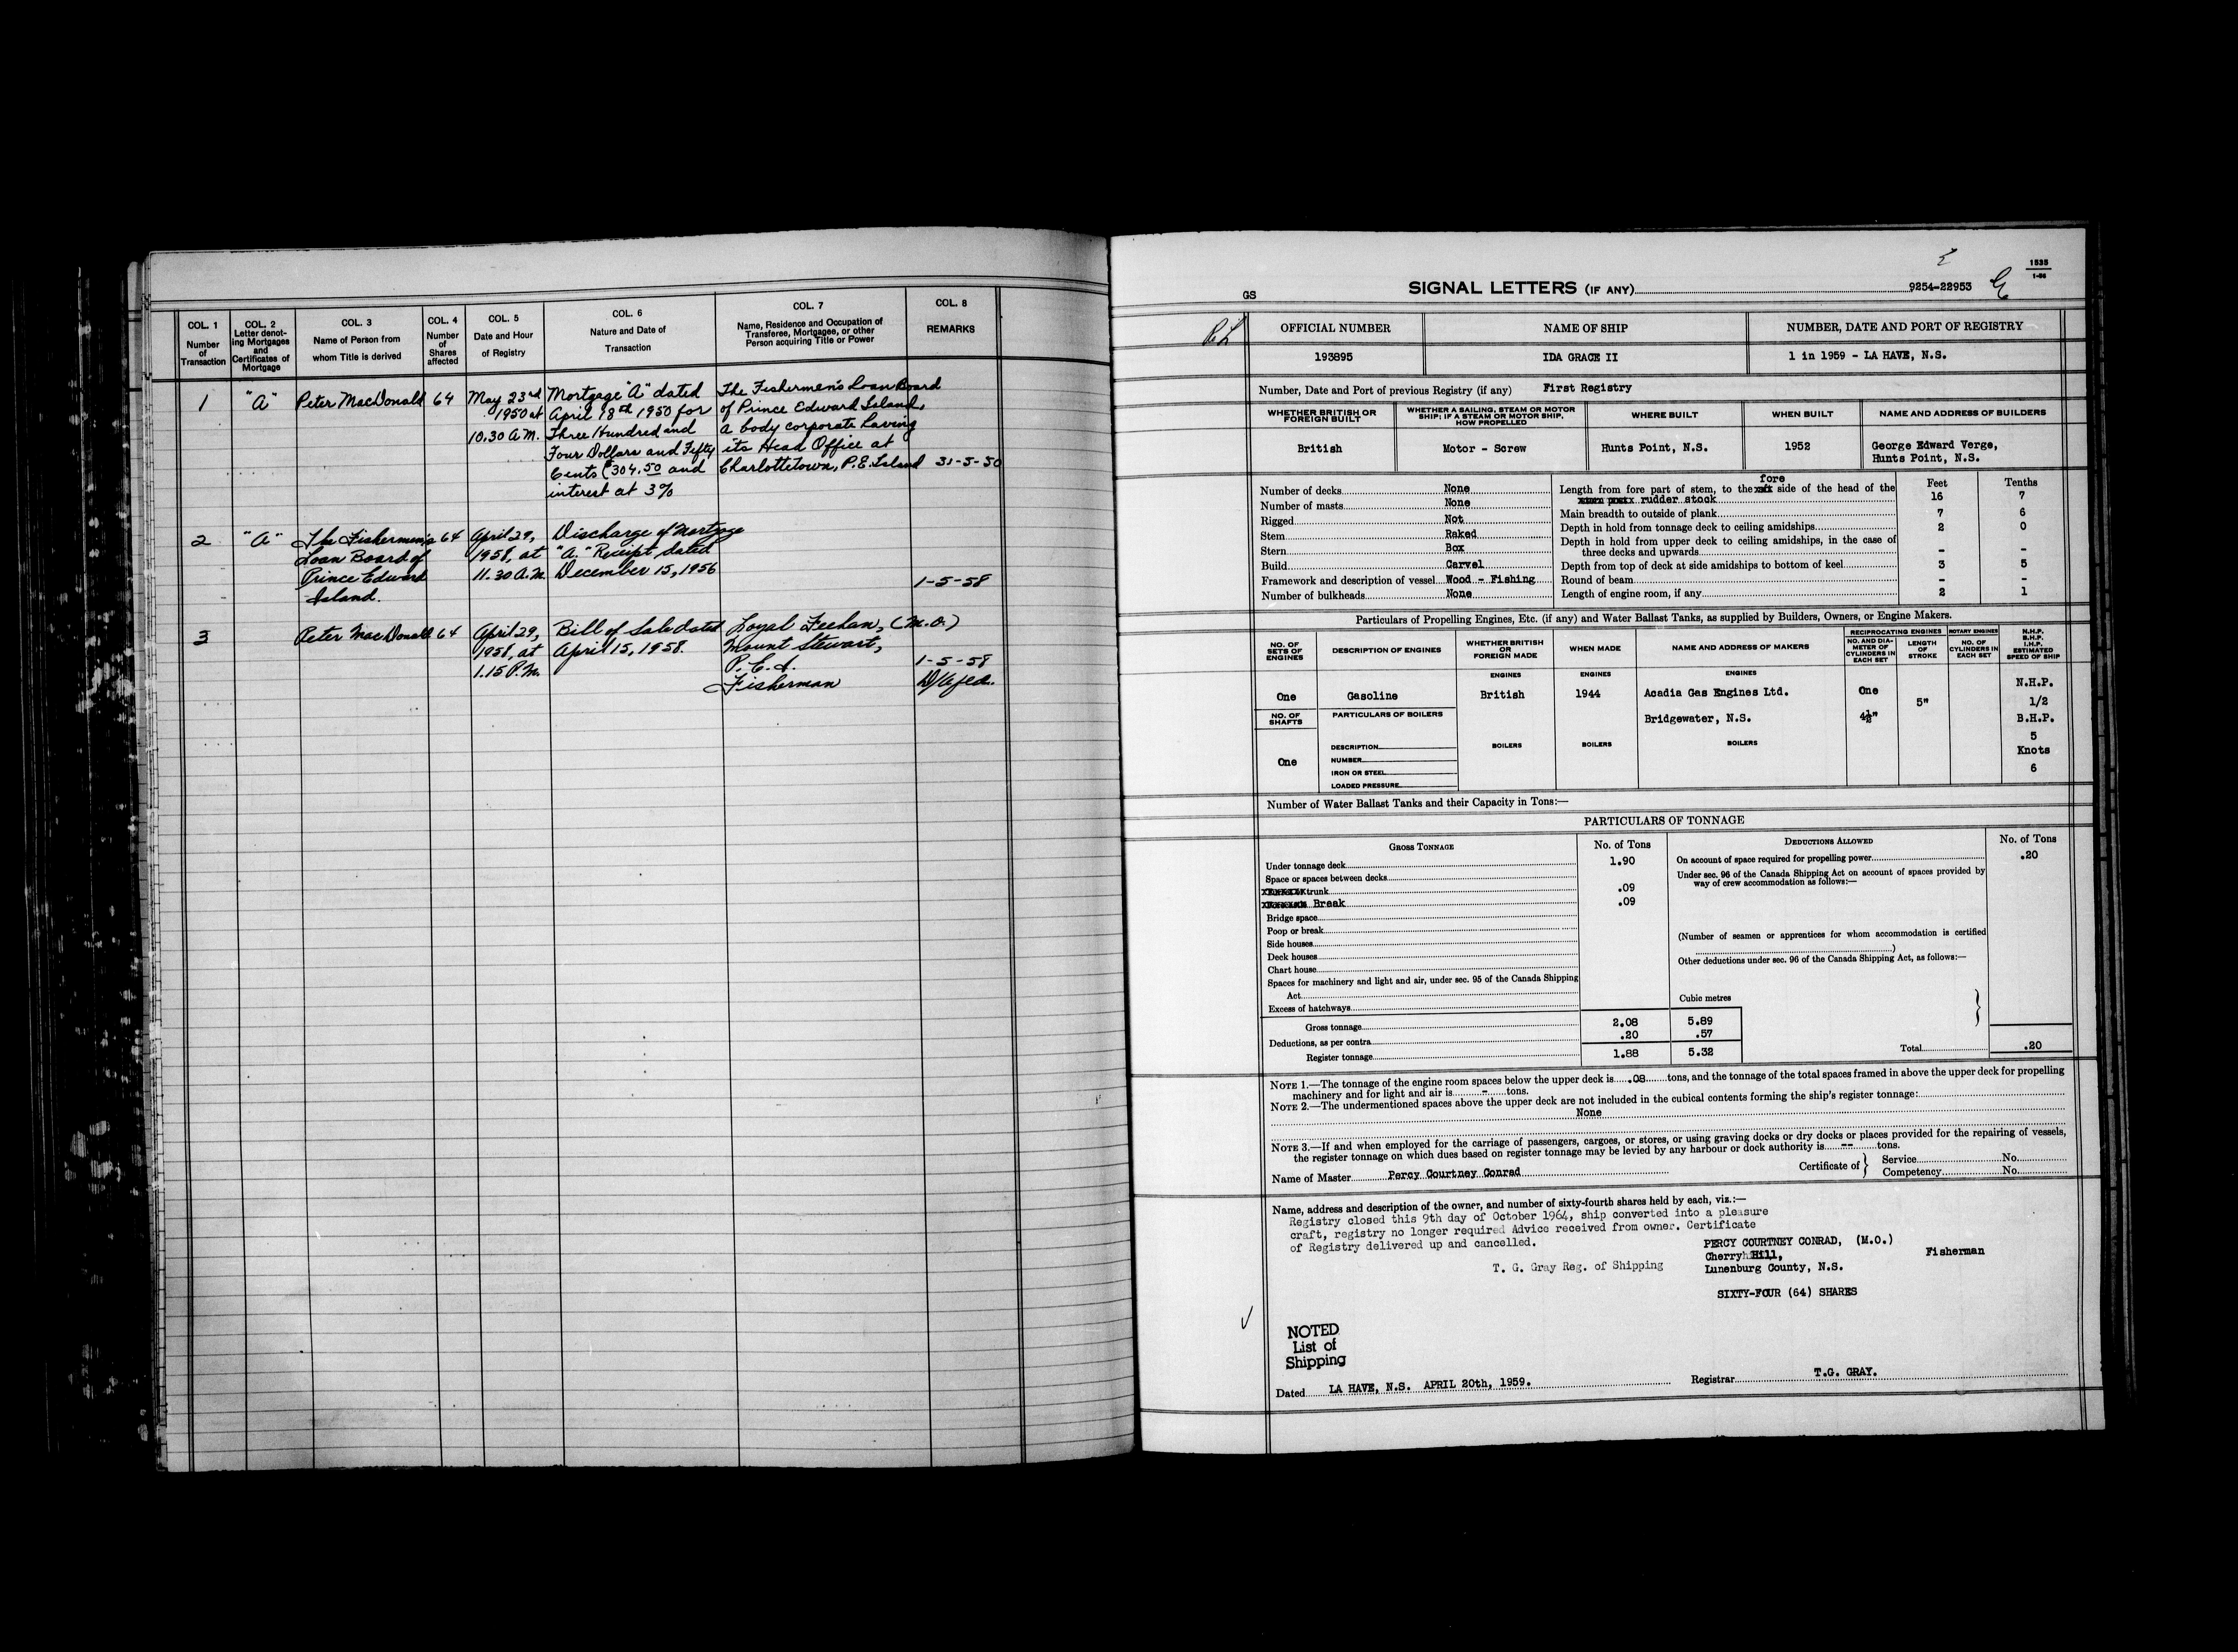 COL. 1
Number
of
Transaction
COL. 2
Letter denot-
ing Mortgages
and
Certificates of
Mortgage
COL. 3
Name of Person from
whom Title is derived
COL. 4
Number
of
Shares
affected
COL. 5
Date and Hour
of Registry
COL. 6
Nature and Date of
Transaction
COL. 7
Name, Residence and Occupation of
Transferee, Mortgagee, or other
Person acquiring Title or Power
COL. 8
REMARKS
1
"A"
Peter MacDonald
64
May 23rd
1950 at
10.30 A.M.
Mortgage "A" dated
April 18th 1950 for
Three Hundred and
Four Dollars and Fifty
Cents ($304.50 and
interest at 3%
The Fishermen's Loan Board
of Prince Edward Island,
a body corporate having
its Head Office at
Charlottetown, P.E. Island
31-5-50
2
"A"
The Fishermen's
Loan Board of
Prince Edward
Island.
64
April 29,
1958, at
11.30 A.M.
Discharge of Mortgage
"A." Receipt, dated
December 15, 1956
1-5-58
3
Peter MacDonald
64
April 29,
1958, at
1.15 P.M.
Bill of Sale dated
April 15, 1958.
Loyal Feehan, (M.O.)
Mount Stewart,
P.E.I.
Fisherman
1-5-58
GS
SIGNAL LETTERS (IF ANY)
9254-22953
1535
1-56
OFFICIAL NUMBER
NAME OF SHIP
NUMBER, DATE AND PORT OF REGISTRY
193895
IDA GRACE II
1 in 1959 - LA HAVE, N.S.
Number, Date and Port of previous Registry (if any) First Registry
WHETHER BRITISH OR
FOREIGN BUILT
WHETHER A SAILING, STEAM OR MOTOR
SHIP; IF A STEAM OR MOTOR SHIP,
HOW PROPELLED
WHERE BUILT
WHEN BUILT
NAME AND ADDRESS OF BUILDERS
British
Motor - Screw
Hunts Point, N.S.
1952
George Edward Verge,
Hunts Point, N.S.
Number of decks None
Number of masts None
Rigged Not
Stem Raked
Stern Box
Build Carvel
Framework and description of vessel Wood - Fishing
Number of bulkheads None
Feet Tenths
fore
Length from fore part of stem, to the side of the head of the
rudder stock 16 7
Main breadth to outside of plank 7 6
Depth in hold from tonnage deck to ceiling amidships 2 0
Depth in hold from upper deck to ceiling amidships, in the case of
three decks and upwards - -
Depth from top of deck at side amidships to bottom of keel 3 5
Round of beam - -
Length of engine room, if any 2 1
Particulars of Propelling Engines, Etc. (if any) and Water Ballast Tanks, as supplied by Builders, Owners, or Engine Makers.
NO. OF
SETS OF
ENGINES
DESCRIPTION OF ENGINES
WHETHER BRITISH
OR
FOREIGN MADE
WHEN MADE
NAME AND ADDRESS OF MAKERS
RECIPROCATING ENGINES
NO. AND DIA-
METER OF
CYLINDERS IN
EACH SET
LENGTH
OF
STROKE
ROTARY ENGINES
NO. OF
CYLINDERS IN
EACH SET
N.H.P.
B.H.P.
I.H.P.
ESTIMATED
SPEED OF SHIP
ENGINES
ENGINES
ENGINES
One
Gasoline
British
1944
Acadia Gas Engines Ltd.
Bridgewater, N.S.
One
4½"
5"
N.H.P.
1/2
B.H.P.
5
Knots
6
NO. OF
SHAFTS
PARTICULARS OF BOILERS
One
DESCRIPTION
NUMBER
IRON OR STEEL
LOADED PRESSURE
BOILERS
BOILERS
BOILERS
Number of Water Ballast Tanks and their Capacity in Tons:—
PARTICULARS OF TONNAGE
GROSS TONNAGE
No. of Tons
DEDUCTIONS ALLOWED
No. of Tons
Under tonnage deck 1.90
Space or spaces between decks
trunk .09
Break .09
Bridge space
Poop or break
Side houses
Deck houses
Chart house
Spaces for machinery and light and air, under sec. 95 of the Canada Shipping
Act
Excess of hatchways
Cubic metres
Gross tonnage 2.08 5.89
Deductions, as per contra .20 .57
Register tonnage 1.88 5.32
On account of space required for propelling power .20
Under sec. 96 of the Canada Shipping Act on account of spaces provided by
way of crew accommodation as follows:—
(Number of seamen or apprentices for whom accommodation is certified
)
Other deductions under sec. 96 of the Canada Shipping Act, as follows:—
Total .20
NOTE 1.—The tonnage of the engine room spaces below the upper deck is .08 tons, and the tonnage of the total spaces framed in above the upper deck for propelling
machinery and for light and air is - tons.
NOTE 2.—The undermentioned spaces above the upper deck are not included in the cubical contents forming the ship's register tonnage:
None
NOTE 3.—If and when employed for the carriage of passengers, cargoes, or stores, or using graving docks or dry docks or places provided for the repairing of vessels,
the register tonnage on which dues based on register tonnage may be levied by any harbour or dock authority is -- tons.
Name of Master Percy Courtney Conrad
Certificate of
Service No.
Competency No.
Name, address and description of the owner, and number of sixty-fourth shares held by each, viz.:—
Registry closed this 9th day of October 1964, ship converted into a pleasure
craft, registry no longer required Advice received from owner. Certificate
of Registry delivered up and cancelled.
T. G. Gray Reg. of Shipping
PERCY COURTNEY CONRAD, (M.O.)
Cherry Hill, Fisherman
Lunenburg County, N.S.
SIXTY-FOUR (64) SHARES
NOTED
List of
Shipping
Dated LA HAVE, N.S. APRIL 20th, 1959.
Registrar T.G. GRAY.